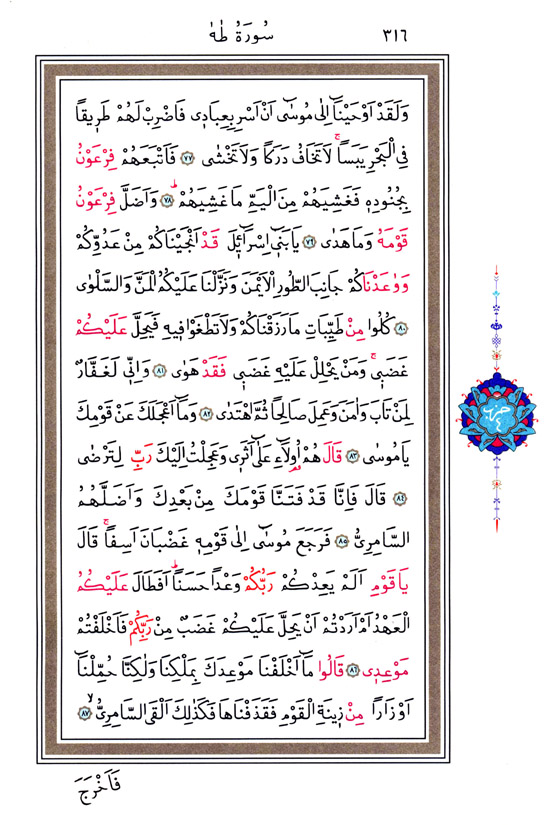 ٣١٦
سُورَةُ طٰهٰ
وَلَقَدْ اَوْحَيْنَٓا اِلٰى مُوسٰٓى اَنْ اَسْرِ بِعِبَاد۪ي فَاضْرِبْ لَهُمْ طَر۪يقًا
فِي الْبَحْرِ يَبَسًاۚ لَا تَخَافُ دَرَكًا وَلَا تَخْشٰى ﴿٧٧﴾ فَاَتْبَعَهُمْ فِرْعَوْنُ
بِجُنُودِه۪ فَغَشِيَهُمْ مِنَ الْيَمِّ مَا غَشِيَهُمْۜ ﴿٧٨﴾ وَاَضَلَّ فِرْعَوْنُ
قَوْمَهُ وَمَا هَدٰى ﴿٧٩﴾ يَا بَن۪ٓي اِسْرَٓائ۪لَ قَدْ اَنْجَيْنَاكُمْ مِنْ عَدُوِّكُمْ
وَوٰعَدْنَاكُمْ جَانِبَ الطُّورِ الْاَيْمَنَ وَنَزَّلْنَا عَلَيْكُمُ الْمَنَّ وَالسَّلْوٰى
﴿٨٠﴾ كُلُوا مِنْ طَيِّبَاتِ مَا رَزَقْنَاكُمْ وَلَا تَطْغَوْا ف۪يهِ فَيَحِلَّ عَلَيْكُمْ
غَضَب۪يۚ وَمَنْ يَحْلِلْ عَلَيْهِ غَضَب۪ي فَقَدْ هَوٰى ﴿٨١﴾ وَاِنّ۪ي لَغَفَّارٌ
لِمَنْ تَابَ وَاٰمَنَ وَعَمِلَ صَالِحًا ثُمَّ اهْتَدٰى ﴿٨٢﴾ وَمَٓا اَعْجَلَكَ عَنْ قَوْمِكَ
يَا مُوسٰى ﴿٨٣﴾ قَالَ هُمْ اُو۬لَٓاءِ عَلٰٓى اَثَر۪ي وَعَجِلْتُ اِلَيْكَ رَبِّ لِتَرْضٰى
﴿٨٤﴾ قَالَ فَاِنَّا قَدْ فَتَنَّا قَوْمَكَ مِنْ بَعْدِكَ وَاَضَلَّهُمُ
السَّامِرِيُّ ﴿٨٥﴾ فَرَجَعَ مُوسٰٓى اِلٰى قَوْمِه۪ غَضْبَانَ اَسِفًاۚ قَالَ
يَا قَوْمِ اَلَمْ يَعِدْكُمْ رَبُّكُمْ وَعْدًا حَسَنًاۜ اَفَطَالَ عَلَيْكُمُ
الْعَهْدُ اَمْ اَرَدْتُمْ اَنْ يَحِلَّ عَلَيْكُمْ غَضَبٌ مِنْ رَبِّكُمْ فَاَخْلَفْتُمْ
مَوْعِد۪ي ﴿٨٦﴾ قَالُوا مَٓا اَخْلَفْنَا مَوْعِدَكَ بِمَلْكِنَا وَلٰكِنَّا حُمِّلْنَٓا
اَوْزَارًا مِنْ ز۪ينَةِ الْقَوْمِ فَقَذَفْنَاهَا فَكَذٰلِكَ اَلْقَى السَّامِرِيُّۙ ﴿٨٧﴾
فَاَخْرَجَ
حزب
٤